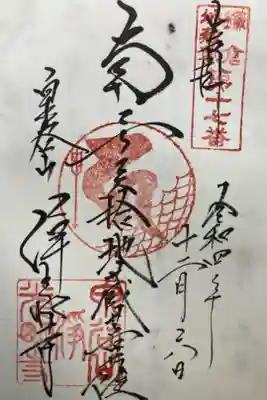 鎌倉
地蔵尊第十七番
令和四年
十二月二八日
南無矢拾地蔵菩薩
泉谷山
浄光明寺